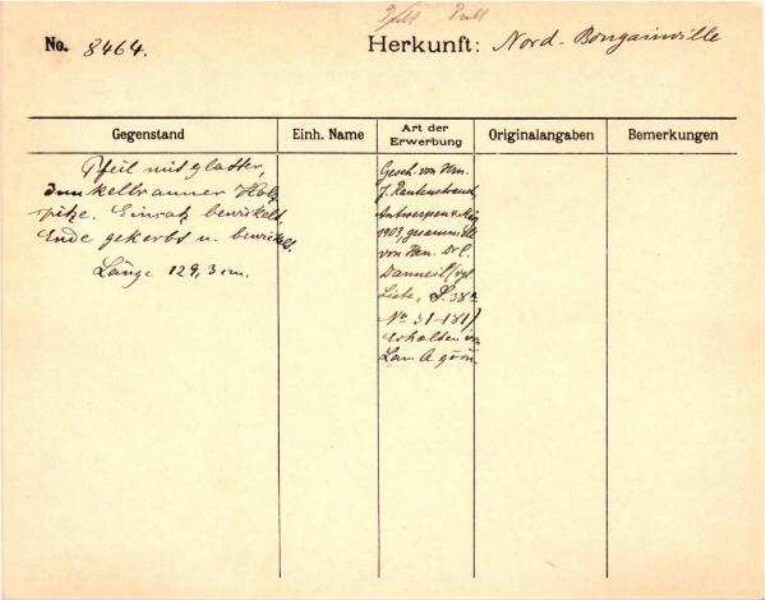 No. 8464.
Herkunft: Nord-Bougainville
Gegenstand
Einh. Name
Art der Erwerbung
Originalangaben
Bemerkungen
Pfeil mit glatter,
dunkelbrauner Holz
spitze. Einsatz bewickelt.
Ende gekerbt u. bewickelt.
Länge 129,3 cm.
Gesch. von Hrn.
J. Rautenstrauch
Antwerpen 4. Mai
1903, gesammelt
von Hrn. Dr C.
Danneil (vgl
Liste, S. 38
No 31-181)
erhalten im